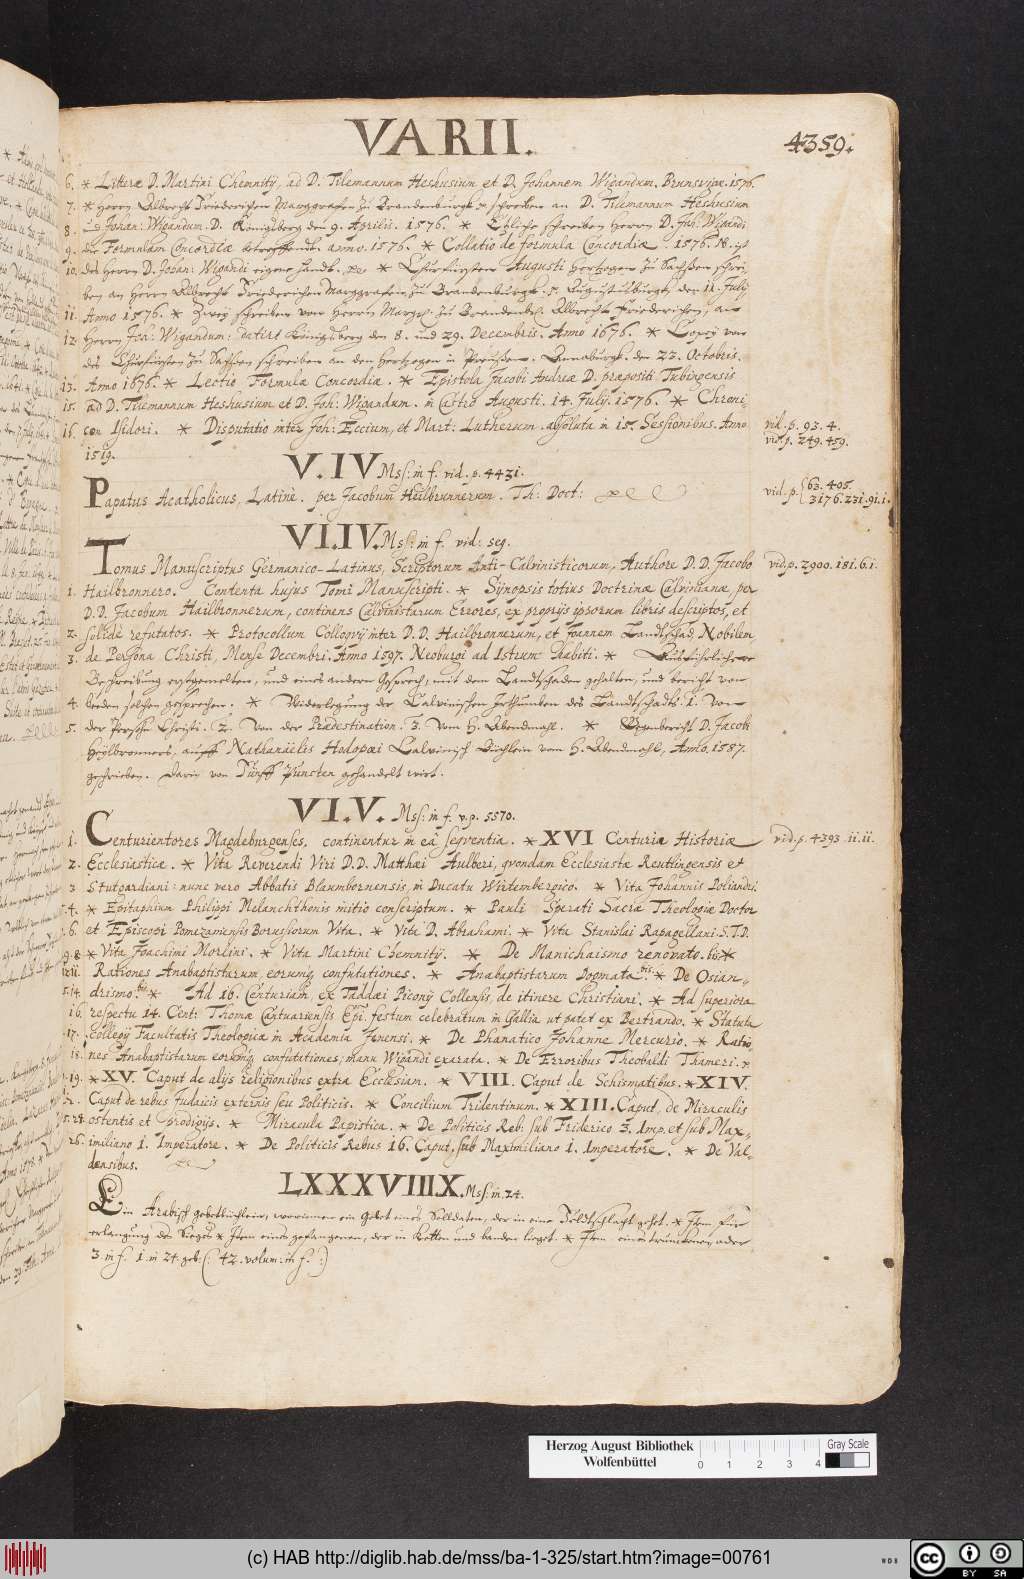 VARII.
4359.
6. * Litteræ D. Martini Chemnitij, ad D. Tilemannum Heshusium et D. Johannem Wigandum. Brunsvigæ. 1576.
7. * Herrn Albrecht Friederichen Marggrafen zu Brandenburgk schreiben an D. Tilemannum Heshusium
8. D. Königsberg den 9. Aprilis. 1576. * Etzliche schreiben Herrn D. Joh. Wigandi
9. die Formulam Concordiæ betreffendt. anno. 1576. * Collatio de formula Concordiæ. 1576. 18. ist
10. des Herrn D. Johan: Wigandi eigene handt. * Churfürsten Augusti Hertzogen zu Sachßen schrei-
ben an Herrn Albrecht Friederichen Marggrafen zu Brandenburgk. Augustusburgk den 11. July
11. Anno 1576. * Zwey schreiben von Herrn Marggr. zu Brandenb. Albrecht Friederichen, an
12. Herrn Joh: Wigandum: datirt Königsberg den 8. und 29. Decembris. Anno 1676. * Copey von
des Churfürsten zu Sachsen schreiben an den Hertzogen in Preussen. Annaburgk. den 23. Octobris.
13. Anno 1676. * Lectio Formulæ Concordiæ. * Epistola Jacobi Andreæ D. præpositi Tubingensis
15. ad D. Tilemannum Heshusium et D. Joh: Wigandum. in Castro Augusti. 14. July. 1576. * Chroni-
16. con Isidori. * Disputatio inter Joh: Eccium, et Mart: Lutherum absoluta in 15. Sessionibus. Anno
1519.
vid. p. 93. 4.
vid. p. 249. 459.
V. IV. Mss: in f. vid. p. 4431.
Papatus Acatholicus, Latinè. per Jacobum Heilbrunnerum. Th: Doct:
vid. p. 63. 405.
3176. 231. 91. 1.
VI. IV. Mss: in f. vid: seq.
Tomus Manuscriptus Germanico-Latinus, Scriptorum Anti-Calvinisticorum, Authore D. D. Jacobo
vid. p. 2900. 181. 6. 1.
1. Hailbronnero. Contenta hujus Tomi Manuscripti. * Synopsis totius Doctrinæ Calvinianæ, per
D. D. Jacobum Hailbronnerum, continens Calvinistarum Errores, ex proprijs ipsorum libris descriptos, et
2. solidè refutatos. * Protocollum Colloquij inter D. D. Hailbronnerum, et Joannem Landtschad, Nobilem
3. de Persona Christi, Mense Decembri. Anno 1597. Neoburgi ad Istrum habiti. * Außführliche
Beschreibung erstgemelten, und eines andern Gesprech, mit dem Landtschaden gehalten, und bericht von
4. beeden solchen gesprechen. * Widerlegung der Calvinischen Irthumben des Landtschadts. 1. Von
5. der Person Christi. 2. Von der Prædestination. 3. Vom H. Abendmahl. * Gegenbericht D. Jacob
Heylbronners, auff Nathanielis Hodopœi Calvinisch Büchlein vom H. Abendmahl, Anno. 1587.
geschrieben. Darin von Fünff Puncten gehandelt wirt.
VI. V. Mss: in f. v. p. 5570.
1. Centuriatores Magdeburgenses, continentur in eâ seqventia. * XVI Centuriæ Historiæ
vid. p. 4393. 11. 11.
2. Ecclesiasticæ. * Vita Reverendi Viri D. D. Matthæi Aulberi, qvondam Ecclesiastæ Reutlingensis et
3 Stutgardiani: nunc vero Abbatis Blaumbornensis, in Ducatu Wirtembergico. * Vita Johannis Poliandri.
4. * Epitaphium Philippi Melanchthonis initio conscriptum. * Pauli Sperati Sacræ Theologiæ Doctor
6. et Episcopi Pomezaniensis Borussiorum Vita. * Vita D. Abrahami. * Vita Stanislai Rapagellani. S. T. D.
9. 8 * Vita Joachimi Morlini. * Vita Martini Chemnitij. * De Manichaismo renovato. bis *
12. 11 Rationes Anabaptistarum, eorumq; confutationes. * Anabaptistarum Dogmata. bis. * De Osian-
5. 14. drismo. bis * Ad 16. Centuriam, ex Taddæi Piconij Collensis, de itinere Christiani. * Ad superiora
16. respectu 14. Cent: Thomæ Cantuariensis Epi. festum celebratum in Gallia ut patet ex Bertrando. * Statuta
17. Collegij Facultatis Theologicæ in Academia Jenensi. * De Phanatico Johanne Mercurio. * Ratio-
18. nes Anabaptistarum eorumq; confutationes, manu Wigandi exarata. * De Erroribus Theobaldi Thameri.
19. * XV. Caput de alijs religionibus extra Ecclesiam. * VIII. Caput de Schismatibus. * XIV.
Caput de rebus Judaicis externis seu Politicis. * Concilium Tridentinum. * XIII. Caput, de Miraculis
ostentis et prodigijs. * Miracula Papistica. * De Politicis Reb: sub Friderico 3. Imp. et sub Max-
26. imiliano 1. Imperatore. * De Politicis Rebus 16. Caput, sub Maximiliano 1. Imperatore. * De Val-
densibus.
LXXXVIII.X. Mss: in 24.
Ein Arabisch gebettbüchlein, worinnen ein Gebet eines Solldaten, der in eine Feldtschlacht gehet. * Item für
erlangung des Sieges * Item eines gefangenen, der in Ketten und banden lieget. * Item eines trunckenen, oder
3. in f. 1. in 24. geb: (: 42. volum: in f. :)
Herzog August Bibliothek
Wolfenbüttel
0 1 2 3 4
Gray Scale
(c) HAB http://diglib.hab.de/mss/ba-1-325/start.htm?image=00761
WDB
cc BY SA